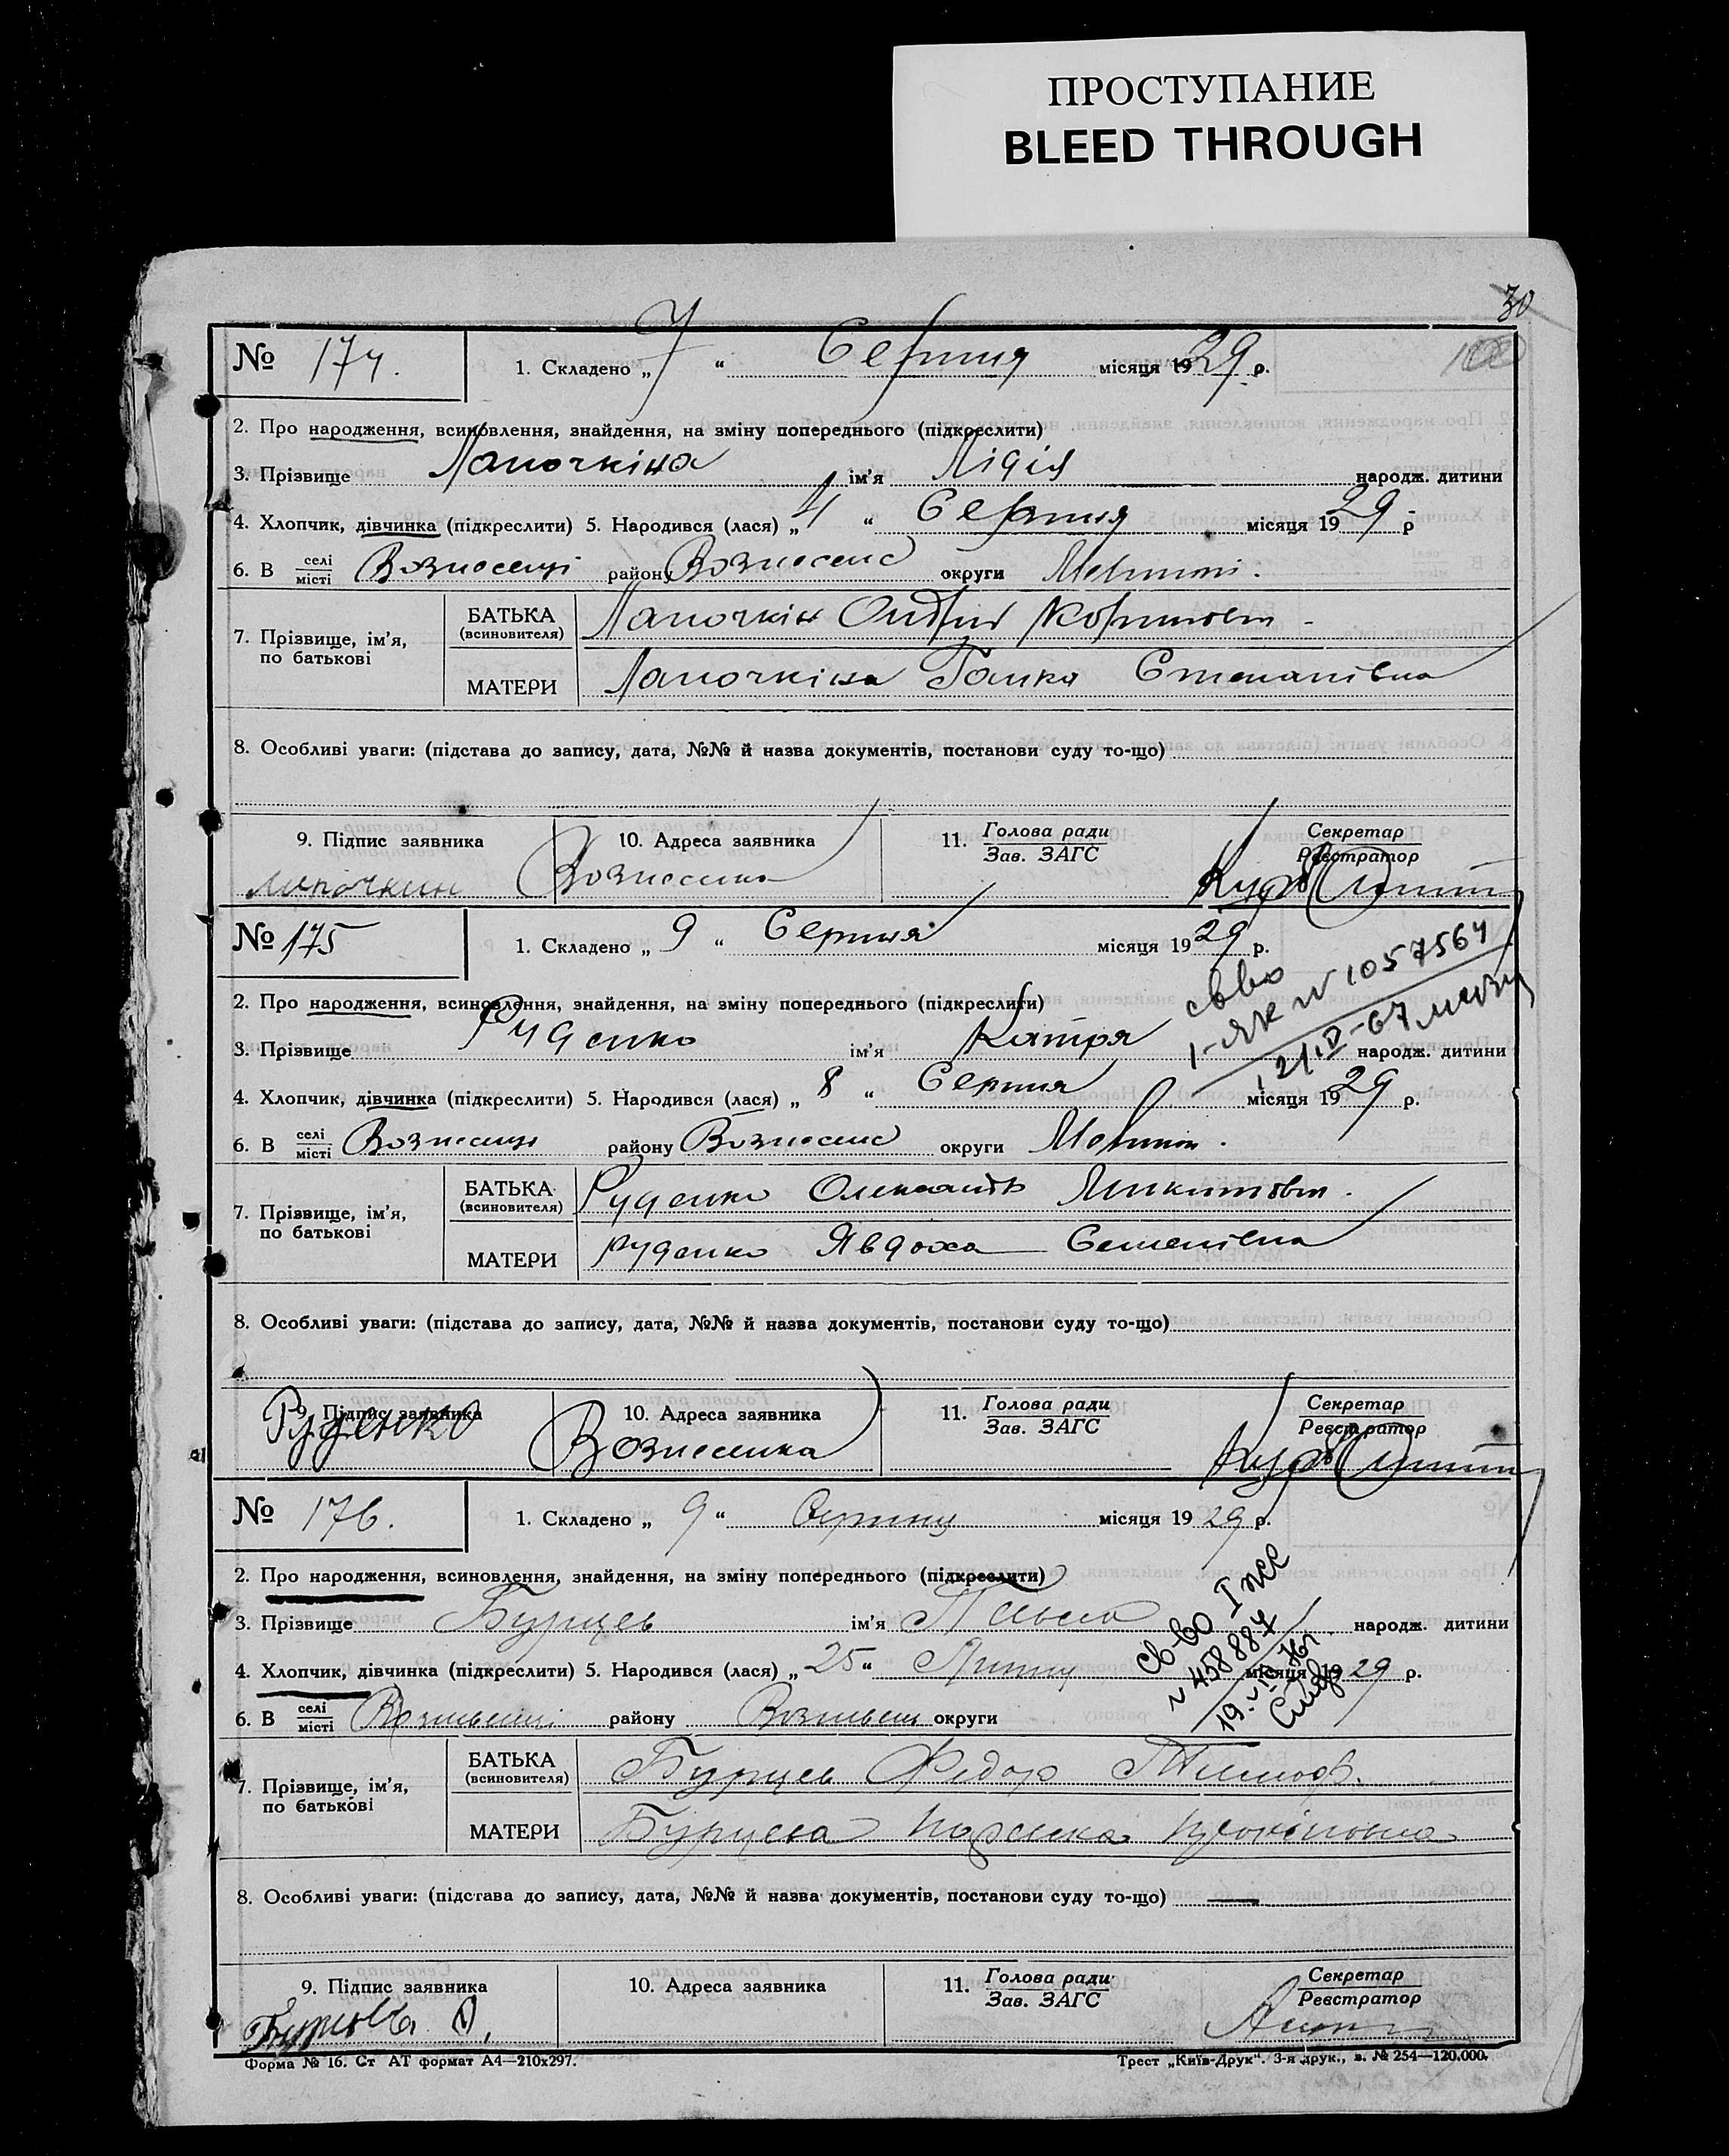 ПРОСТУПАНИЕ
BLEED THROUGH
30
№ 174. 1. Складено „ 7 “ Серпня місяця 1929 р.
2. Про народження, всиновлення, знайдення, на зміну попереднього (підкреслити)
3. Прізвище Лапочкіна ім'я Лідія народж. дитини
4. Хлопчик, дівчинка (підкреслити) 5. Народився (лася) „ 4 “ Серпня місяця 1929 р
6. В селі/місті Вознесенці району Вознесенс округи
7. Прізвище, ім'я, по батькові
БАТЬКА (всиновителя) Лапочкін Ондрій
МАТЕРИ Лапочкіна Ганна Степанівна
8. Особливі уваги: (підстава до запису, дата, №№ й назва документів, постанови суду то-що)
9. Підпис заявника 10. Адреса заявника 11. Голова ради/Зав. ЗАГС Секретар/Реєстратор
Лапочкин Вознесенка
№ 175 1. Складено „ 9 “ Серпня місяця 1929 р.
2. Про народження, всиновлення, знайдення, на зміну попереднього (підкреслити)
св-во
I-ЯК № 1057564
3. Прізвище Руденко ім'я Катря народж. дитини
4. Хлопчик, дівчинка (підкреслити) 5. Народився (лася) „ 8 “ Серпня місяця 1929 р.
6. В селі/місті Вознесенці району Вознесенс округи
7. Прізвище, ім'я, по батькові
БАТЬКА (всиновителя) Руденко Олександр Микитович.
МАТЕРИ Руденко Явдоха Семенівна
8. Особливі уваги: (підстава до запису, дата, №№ й назва документів, постанови суду то-що)
9. Підпис заявника 10. Адреса заявника 11. Голова ради/Зав. ЗАГС Секретар/Реєстратор
Руденко Вознесенка
№ 176. 1. Складено „ 9 “ Серпня місяця 1929 р.
2. Про народження, всиновлення, знайдення, на зміну попереднього (підкреслити)
3. Прізвище Бурцев ім'я народж. дитини
св-во I жс
№ 458884
4. Хлопчик, дівчинка (підкреслити) 5. Народився (лася) „ 25 “ Липня місяця 1929 р.
6. В селі/місті району округи
7. Прізвище, ім'я, по батькові
БАТЬКА (всиновителя) Бурцев Федор Тимоф.
МАТЕРИ Бурцева
8. Особливі уваги: (підстава до запису, дата, №№ й назва документів, постанови суду то-що) —
9. Підпис заявника 10. Адреса заявника 11. Голова ради/Зав. ЗАГС Секретар/Реєстратор
Форма № 16. Ст АТ формат А4—210х297. Трест „Київ-Друк“. 3-я друк., з. № 254—120.000.